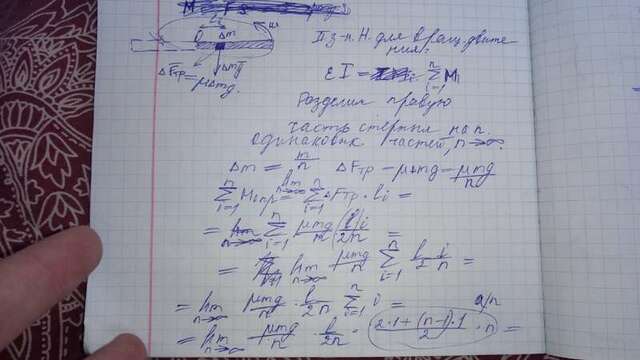 li
Δm
ω
O
ΔFтр=
μΔmg.
Δmg
II з-н. Н. для вращ. движе
ния:
εI = Σ Mi
i=1 n
Разделим правую
часть стержня на n
одинаковых частей, n→∞
Δm = m/n ΔFтр = μΔmg = μmg/n
Σ Miтр = lim Σ ΔFтр · li =
= lim n→∞ Σ i=1 n μmg/n (l/2n) i =
= lim n→∞ μmg/n Σ i=1 n l/2 · i/n =
= lim n→∞ μmg/n · l/2n Σ i=1 n i =
= lim n→∞ μmg/n · l/2n · (2·1+(n-1)·1)/2 · n =